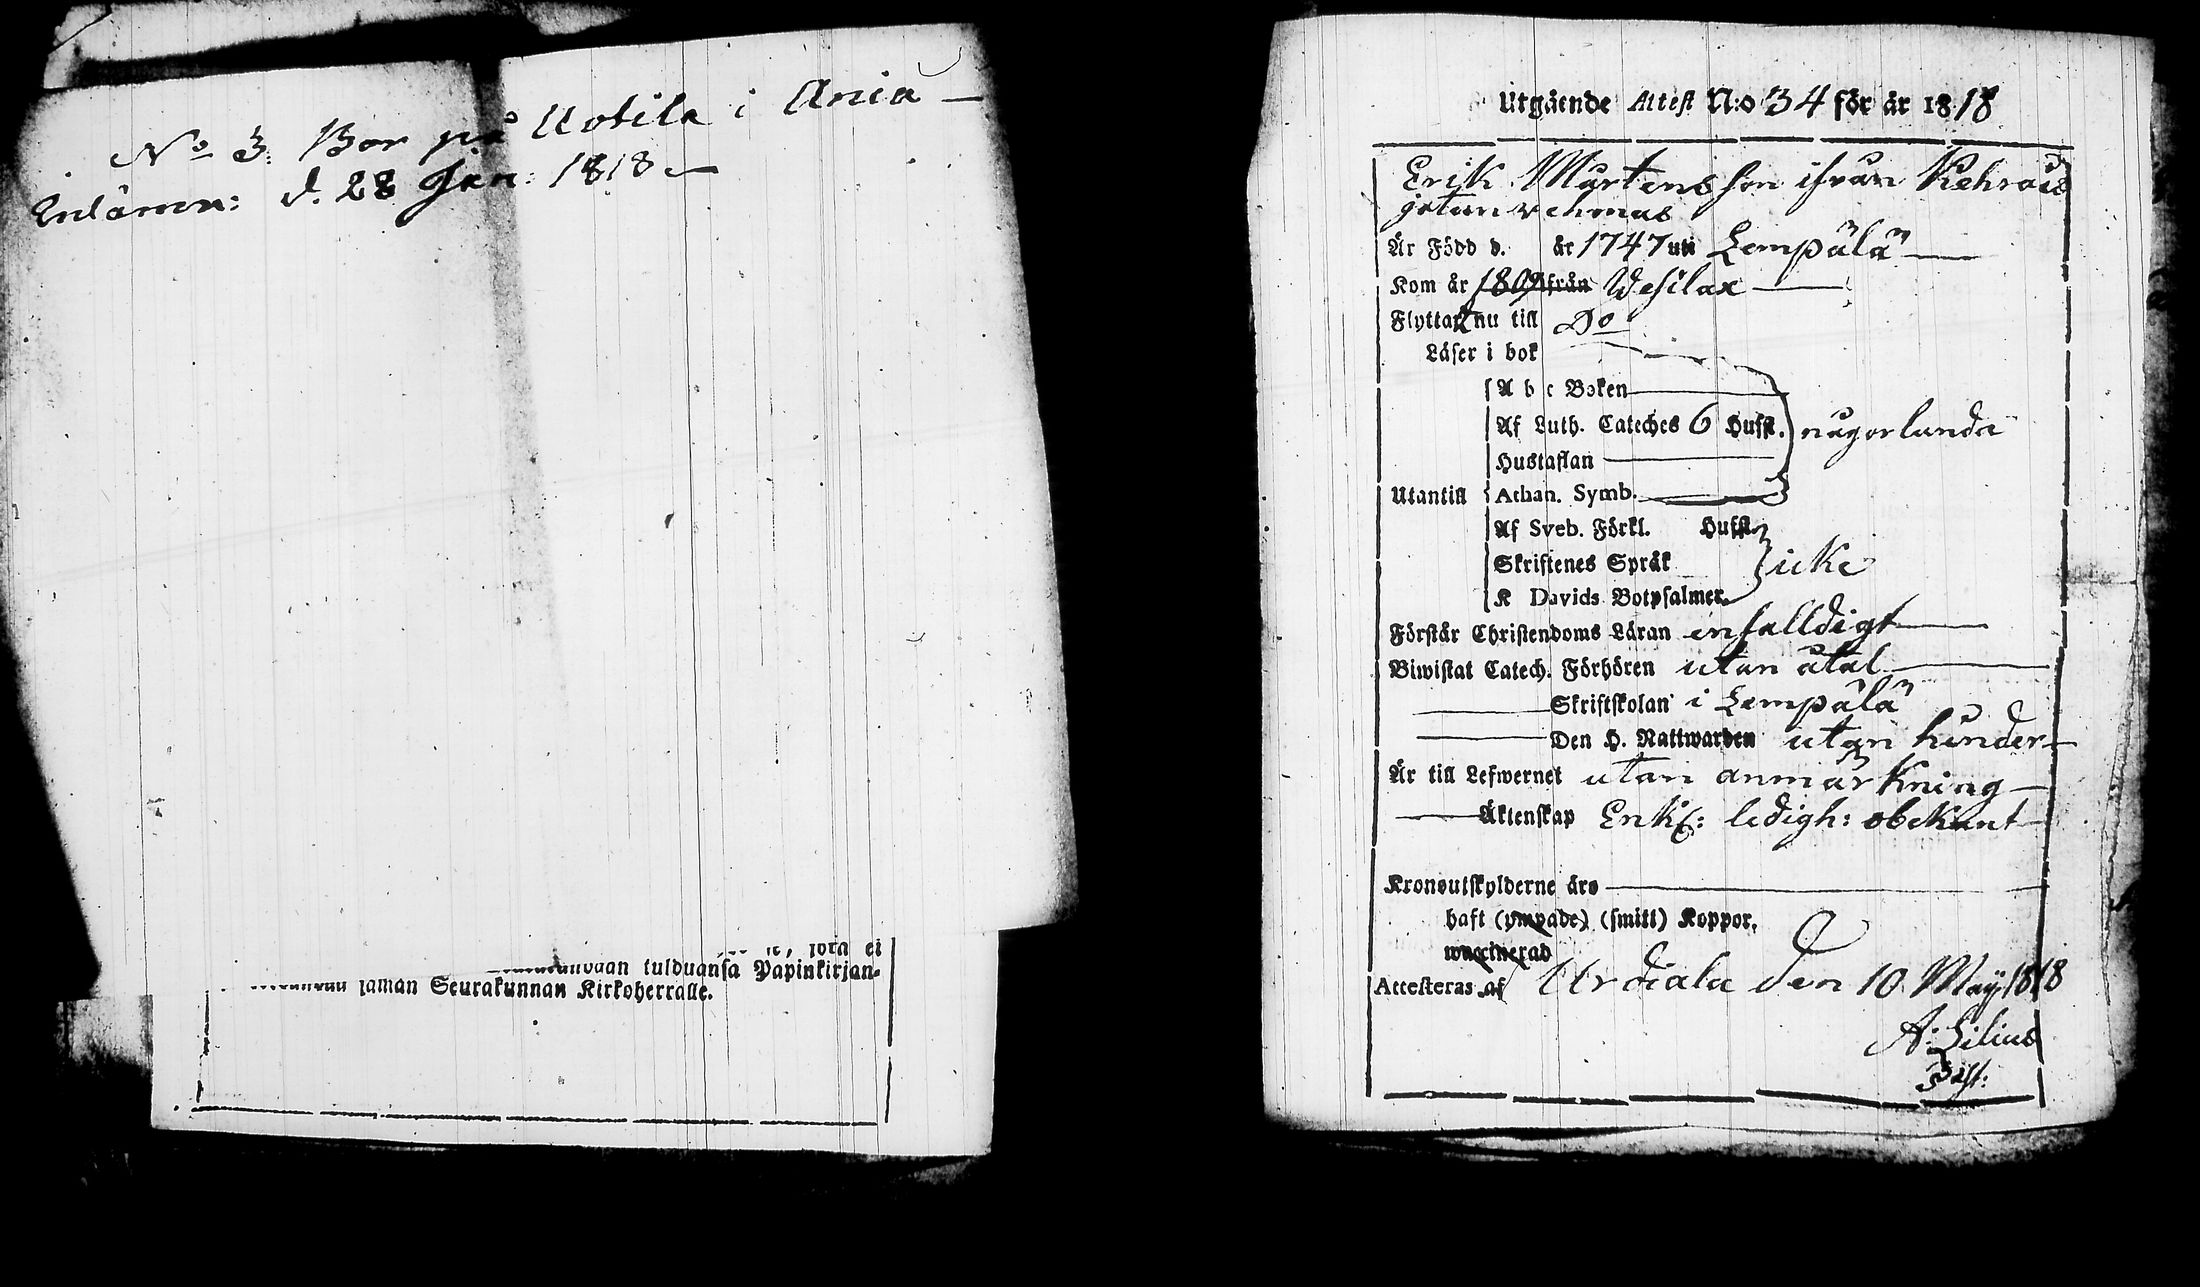 No 3. Bor på Uotila i Ania —
Inlämn: d. 28 Jan: 1818 —
tulduansa Papinkirjan-
saman Seurakunnan Kirkoherralle.
Utgående Attest N:o 34 för år 1818
Erik Mårtensson ifrån
Är Född d. år 1747 uti Lempälä
Kom år 1809 ifrån Wesilax
Flyttar nu till Do
Läser i bok
A b c Boken
Af Luth. Cateches 6 Hufst. någorlunda
Hustaflan
Utantill Athan. Symb.
Af Sveb. Förkl. Hufst.
Skriftenes Språk icke
K Davids Botpsalmer.
Förstår Christendoms Läran enfalldigt
Biwistat Catech. Förhören utan åtal
Skriftskolan i Lempälä
Den H. Nattwarden utan hinder
Är till Lefwernet utan anmärkning
Äktenskap Enkl: ledigh: obekant
Kronoutskylderne äro
haft (ympade) (smitt) Koppor.
waccinerad
Attesteras af Urdiala den 10 Maÿ 1818
A: Lilius
Past: